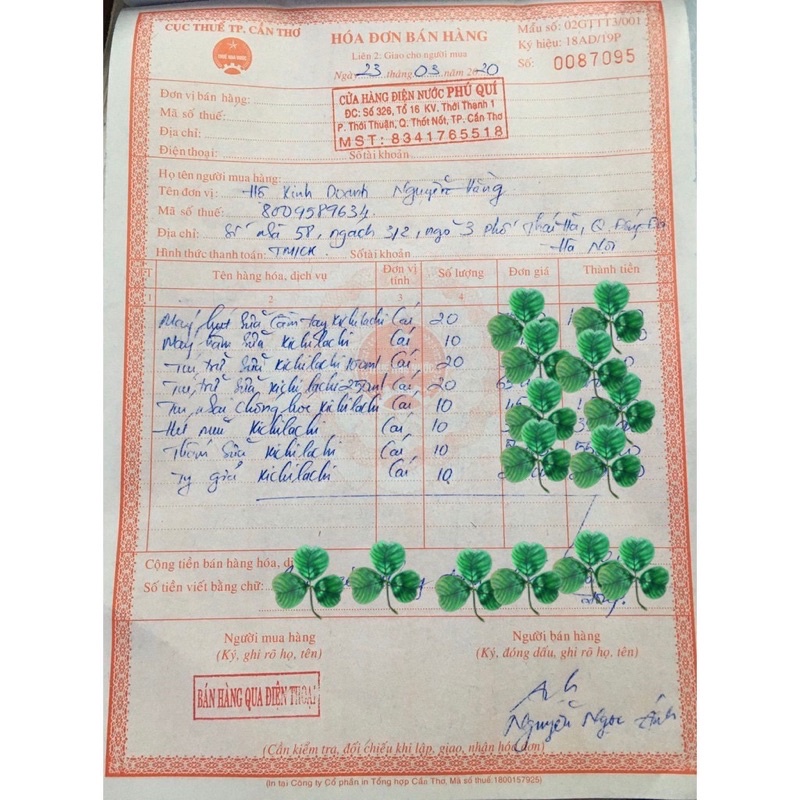 CỤC THUẾ TP. CẦN THƠ
HÓA ĐƠN BÁN HÀNG
Liên 2: Giao cho người mua
Ngày 23 tháng 03 năm 2020
Mẫu số: 02GTTT3/001
Ký hiệu: 18AD/19P
Số: 0087095
Đơn vị bán hàng:
Mã số thuế:
Địa chỉ:
Điện thoại: Số tài khoản
CỬA HÀNG ĐIỆN NƯỚC PHÚ QUÍ
ĐC: Số 326, Tổ 16 KV. Thới Thạnh 1
P. Thới Thuận, Q. Thốt Nốt, TP. Cần Thơ
MST: 8341765518
Họ tên người mua hàng:
Tên đơn vị: Hộ Kinh Doanh Nguyễn Hằng
Mã số thuế: 8009589634
Địa chỉ: Số nhà 58, ngạch 312, ngõ 3 phố Thái Hà, Q. Đống Đa
Hà Nội
Hình thức thanh toán: TM/CK Số tài khoản
STT Tên hàng hóa, dịch vụ Đơn vị tính Số lượng Đơn giá Thành tiền
1 2 3 4
Máy hút sữa cầm tay Kichilachi Cái 20
Máy hâm sữa Kichilachi Cái 10
Túi trữ sữa Kichilachi 100ml Cái 20
Túi trữ sữa Kichilachi 250ml Cái 20
chống Kichilachi Cái 10
Kichilachi Cái 10
Thấm sữa Kichilachi Cái 10
Ty giả Kichilachi Cái 10
Cộng tiền bán hàng hóa,
Số tiền viết bằng chữ:
Người mua hàng
(Ký, ghi rõ họ, tên)
Người bán hàng
(Ký, đóng dấu, ghi rõ họ, tên)
BÁN HÀNG QUA ĐIỆN THOẠI
Nguyễn Ngọc Ánh
(Cần kiểm tra, đối chiếu khi lập, giao, nhận hóa đơn)
(In tại Công ty Cổ phần in Tổng hợp Cần Thơ. Mã số thuế: 1800157925)